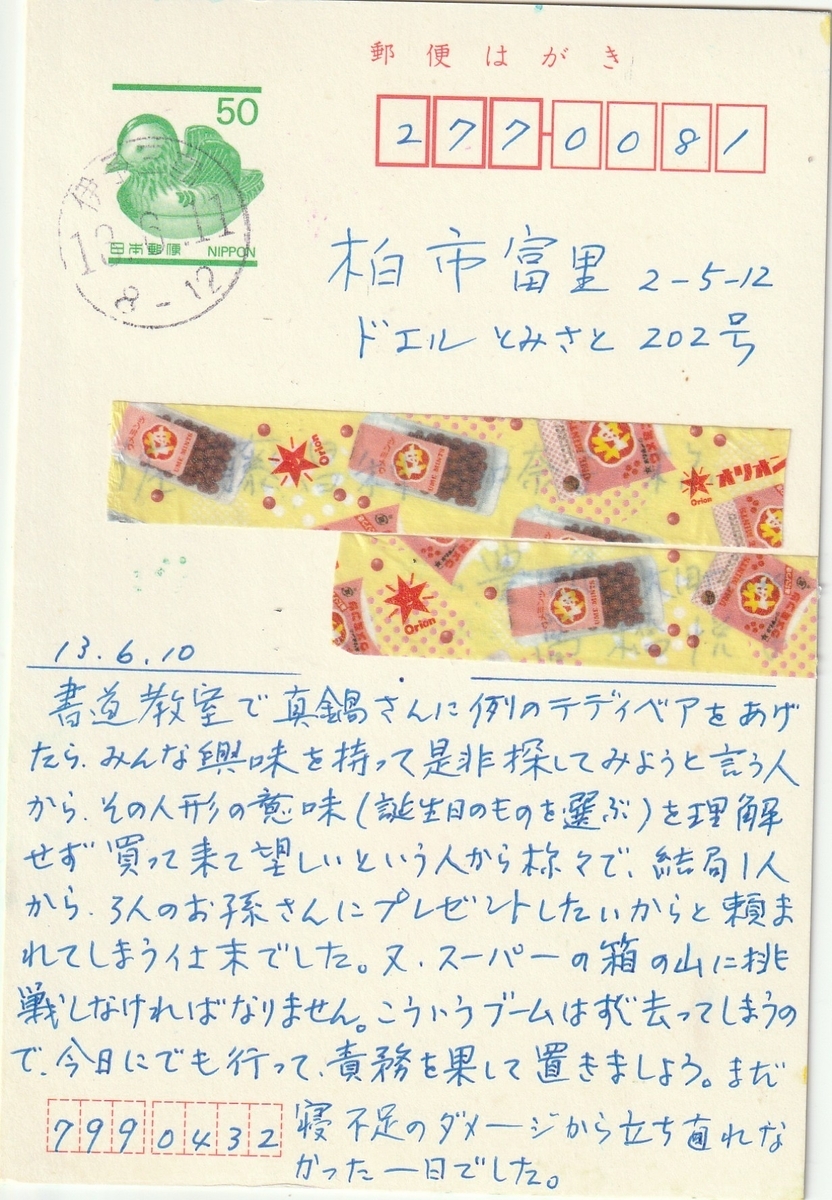 郵便はがき
50
日本郵便 NIPPON
8-12
277-0081
柏市富里 2-5-12
ドエルとみさと 202号
ウメミンツ
梅
UME MINTS
Orion
オリオン
13.6.10
書道教室で真鍋さんに例のテディベアをあげ
たら、みんな興味を持って是非探してみようと言う人
から、その人形の意味(誕生日のものを選ぶ)を理解
せず買って来て望しいという人から様々で、結局1人
から、3人のお孫さんにプレゼントしたいからと頼ま
れてしまう仕末でした。又、スーパーの箱の山に挑
戦しなければなりません。こういうブームはすぐ去ってしまうの
で、今日にでも行って、責務を果して置きましょう。まだ
寝不足のダメージから立ち直れな
かった一日でした。
7990432